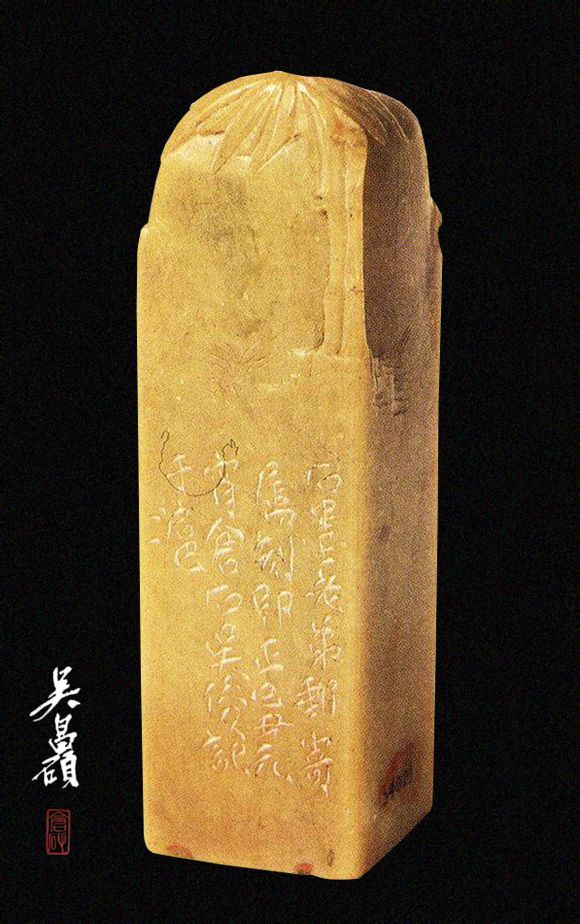 石墨老弟郵寄
屬刻即正己丑元
宵倉石吳俊記
于滬
吳昌碩